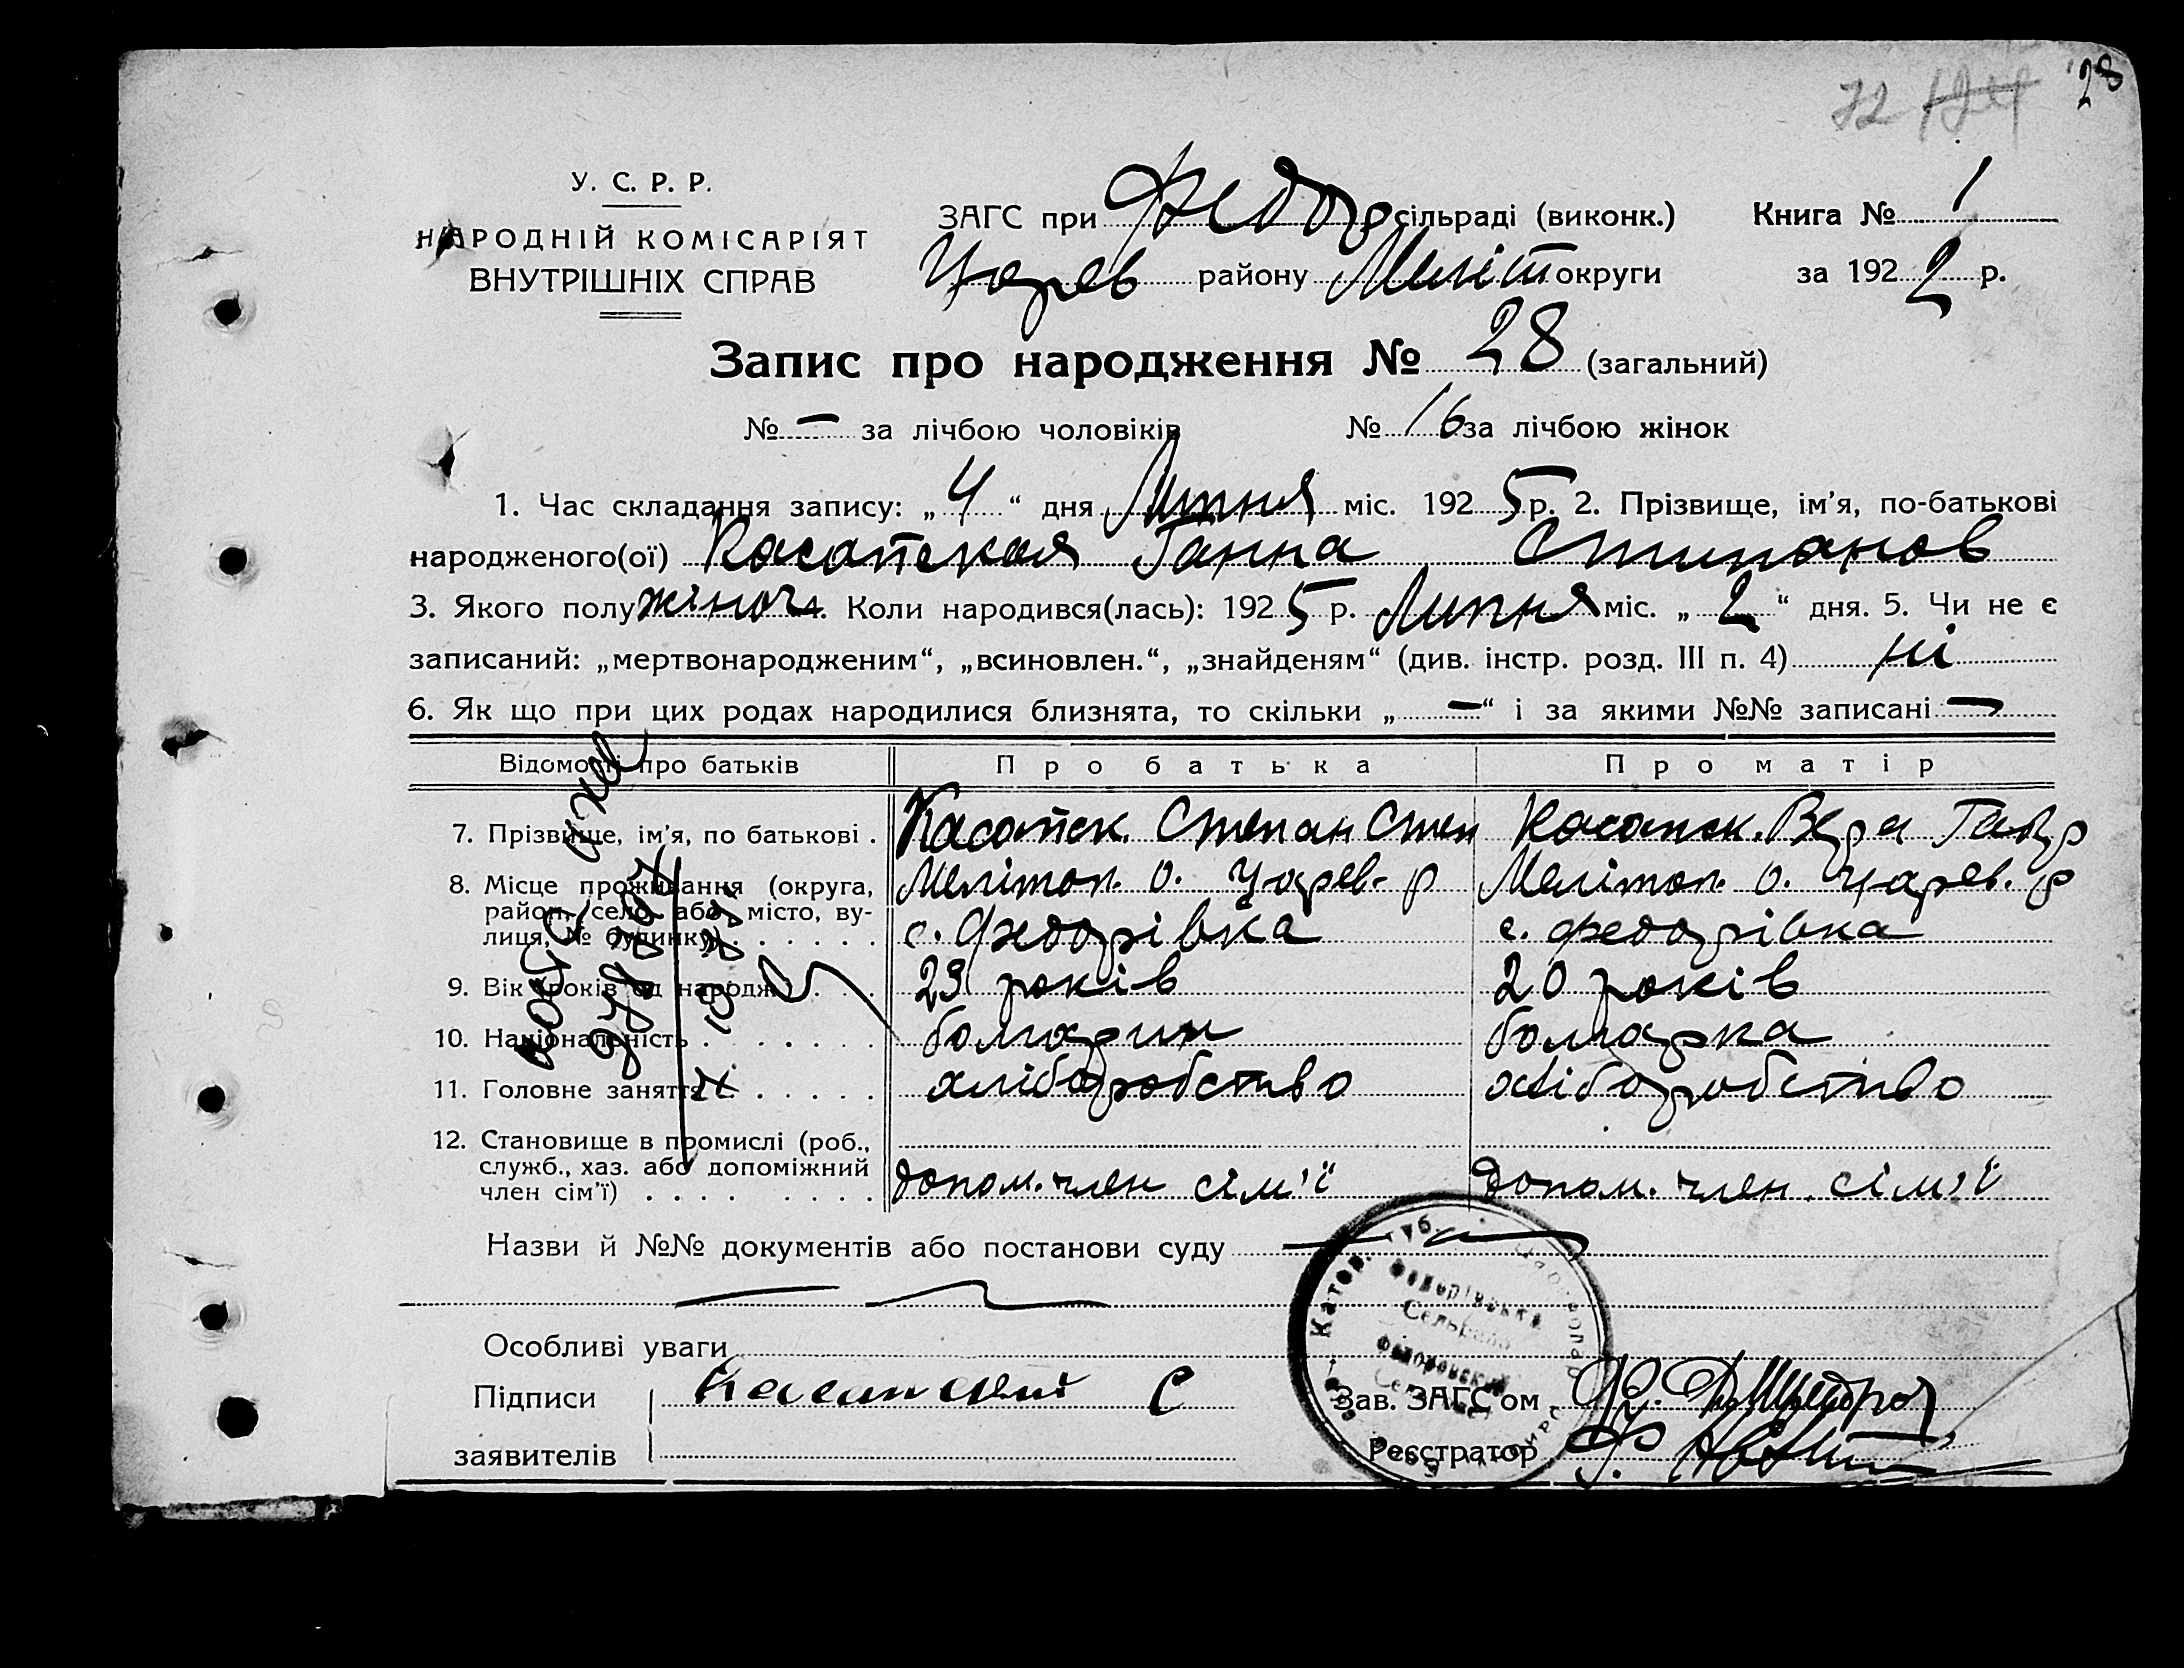 28
72 124
У. С. Р. Р.
НАРОДНІЙ КОМІСАРІЯТ
ВНУТРІШНІХ СПРАВ
ЗАГС при Федор сільраді (виконк.) Книга № 1
Царев району Меліт округи за 1922 р.
Запис про народження № 28 (загальний)
№ – за лічбою чоловіків № 16 за лічбою жінок
1. Час складання запису: „4“ дня Липня міс. 1925 р. 2. Прізвище, ім’я, по-батькові
народженого(ої) Касапская Ганна Стипанов
3. Якого полу жіноч 4. Коли народився(лась): 1925 р. Липня міс. „2“ дня. 5. Чи не є
записаний: „мертвонародженим“, „всиновлен.“, „знайденям“ (див. інстр. розд. III п. 4) ні
6. Як що при цих родах народилися близнята, то скільки „–“ і за якими №№ записані –
Відомості про батьків Про батька Про матір
7. Прізвище, ім’я, по батькові . Касапск. Степан Степ Касапск. Вера Гавр
8. Місце проживання (округа, Меліпоп. о. Царев. р Меліпоп. о. Царев. р
район, село або місто, ву- с. Федорівка с. федорівка
лиця, № будинку)
9. Вік (років од народж.) 23 років 20 років
10. Національність болгарин болгарка
11. Головне заняття хліборобство хліборобство
12. Становище в промислі (роб.,
служб., хаз. або допоміжний допом. член сім’ї допом. член. сім’ї
член сім’ї)
Назви й №№ документів або постанови суду –
Особливі уваги
Підписи Касапский С Зав. ЗАГС’ом
заявителів Реєстратор
Катор. губ.
Федорівська
Сельрада
Федоровский